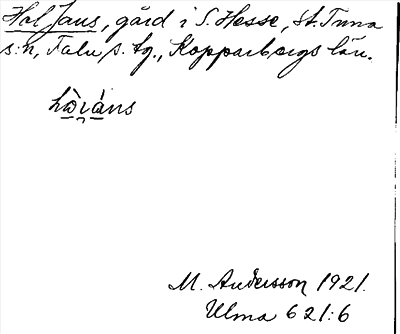 Hol Jans, gård i S. Hesse, St. Tuna
s:n, Falu s. tg., Kopparbergs län.
hòi̯áns
M. Andersson 1921.
Ulma 621:6